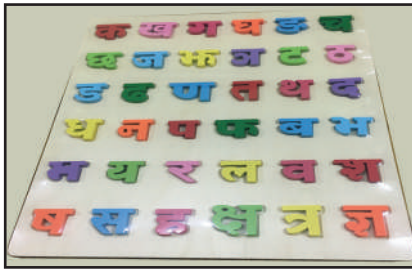 क ख ग घ ङ च
छ ज झ ञ ट ठ
ड ढ ण त थ द
ध न प फ ब भ
म य र ल व श
ष स ह क्ष त्र ज्ञ